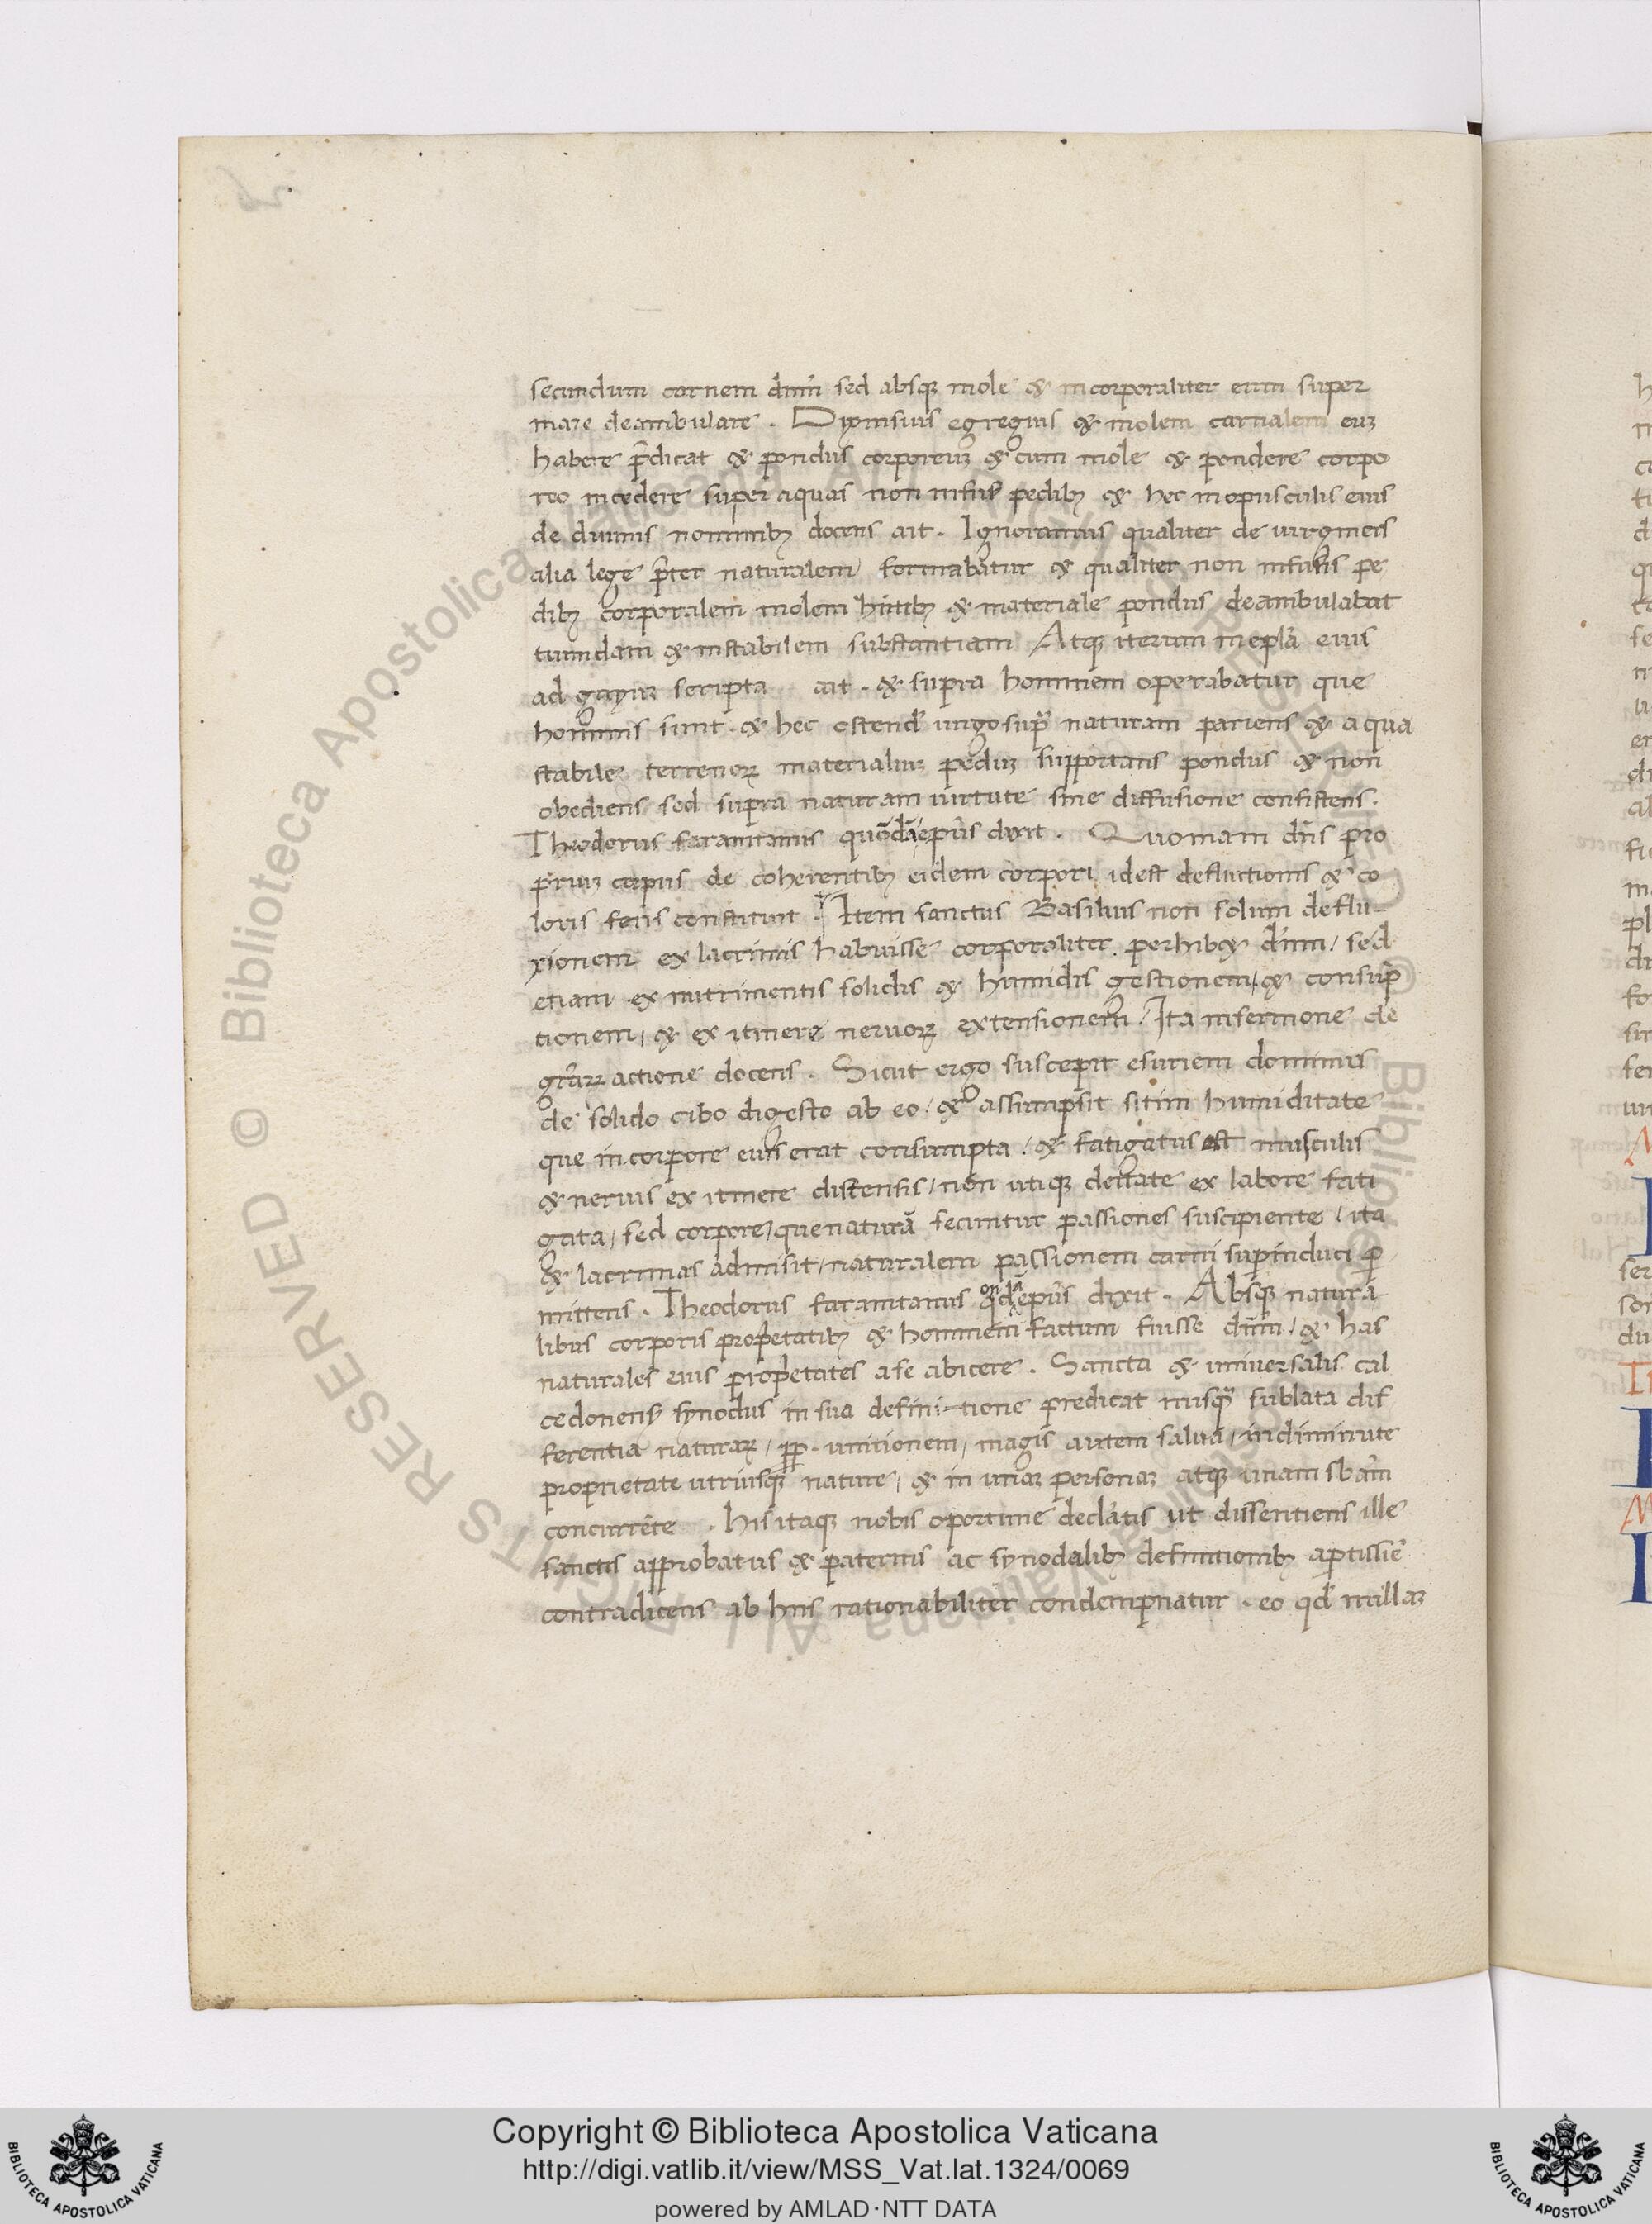 secundum carnem dnm̄ sed absqꝫ mole & incorporaliter eum super
mare deambulare. Dyonisius egregius & molem carnalem euꝫ
habere p̄dicat & pondus corporeuꝫ & cum mole & pondere corpo
reo incedere super aquas non infusis pedibꝫ & hec in opusculis eius
de diuinis nominibꝫ docens ait. Ignoramus qualiter de uirgineis
alia lege p̄ter naturalem formabatur & qualiter non infusis pe
dibꝫ corporalem molem hntibꝫ & materiale pondus deambulabat
tumidam & instabilem substantiam Atqꝫ iterum in epl̄a eius
ad gayuꝫ scripta ait. & supra hominem operabatur que
hominis sunt. & hec ostend̄ uirgo sup̄ naturam pariens & aqua
stabile terrenoꝝ materialiuꝫ peduꝫ supportans pondus & non
obediens sed supra naturam uirtute sine diffusione consistens.
Theodorus faranitanus quōdā ep̄us dixit. Quoniam dn̄s pro
priuꝫ corpus de coherentibꝫ eidem corpori idest defluctionis & co
loris foris constituit. Item sanctus Basilius non solum deflu-
xionem ex lacrimis habuisse corporaliter perhibꝫ dn̄m / sed
etiam ex nutrimentis solidis & humidis gestionem / & consūp
tionem / & ex itinere neruoꝝ extensionem / Ita in sermone de
gr̄aꝝ actione docens. Sicut ergo suscepit esuriem dominus
de solido cibo digesto ab eo / & assumpsit sitim humiditate
que in corpore eius erat consumpta / & fatigatus est musculis
& neruis ex itinere distensis / non utiqꝫ deitate ex labore fati
gata / sed corpore / que naturā secuntur passiones suscipiente / ita
& lacrimas admisit / naturalem passionem carni supinduci p̱
mittens. Theodorus faranitanus qondā ep̄us dixit. Absqꝫ natura
libus corporis prop̄etatibꝫ & hominem factum fuisse dn̄m / & has
naturales eius prop̄etates a se abicere. Sancta & uniuersalis cal
cedonensꝭ synodus in sua defini-tione predicat nusqꝫ̄ sublata dif
ferentia naturaꝝ / pp̱. unitionem / magis autem salua / indiminute
proprietate utriusqꝫ nature / & in unaꝫ personaꝫ atqꝫ unam sbām
concurrēte. his itaqꝫ nobis oportune decl̄atis ut dissentiens ille
sanctis approbatus & paternis ac synodalibꝫ definitionibꝫ aptissīe
contradicens ab hiis rationabiliter condempnatur. eo qd̄ nullaꝫ
© Biblioteca Apostolica Vaticana ALL RIGHTS RESERVED
Copyright © Biblioteca Apostolica Vaticana
http://digi.vatlib.it/view/MSS_Vat.lat.1324/0069
powered by AMLAD·NTT DATA
BIBLIOTECA APOSTOLICA VATICANA
BIBLIOTECA APOSTOLICA VATICANA